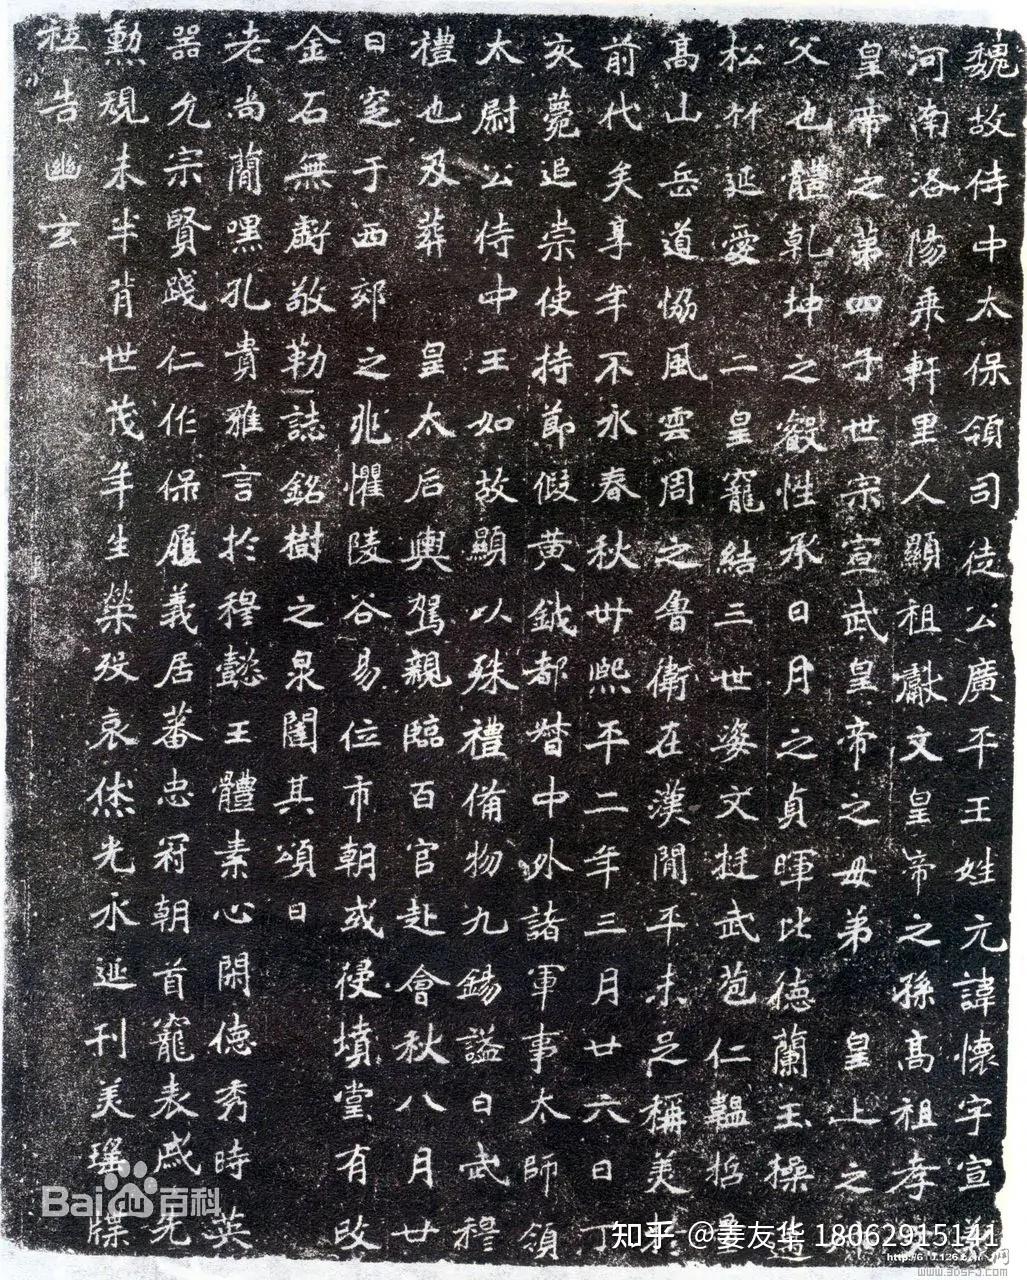 魏故侍中太保領司徒公廣平王姓元諱懷字宣義
河南洛陽乘軒里人顯祖獻文皇帝之孫高祖孝
皇帝之第四子世宗宣武皇帝之母弟 皇上之叔
父也體乾坤之叡性承日月之貞暉比德蘭玉操邁
松竹延愛 二皇寵結三世姿文挺武苞仁韞哲量
高山岳道協風雲周之魯衛在漢間平未足稱美於
前代矣享年不永春秋卅熙平二年三月廿六日丁
亥薨追崇使持節假黃鉞都督中外諸軍事太師領
太尉公侍中王如故顯以殊禮備物九錫謚曰武穆
禮也及葬 皇太后輿駕親臨百官赴會秋八月廿
日窆于西郊之兆懼陵谷易位市朝或侵墳堂有改
金石無虧敬勒誌銘樹之泉闥其頌曰
老尚簡嘿孔貴雅言於穆懿王體素心閑德秀時英
器允宗賢踐仁作保履義居蕃忠冠朝首寵表戚先
勳規未半背世茂年生榮歿哀休光永延刊美瑤牒
祗告幽玄
Bai百科
知乎 @姜友华 18062915141